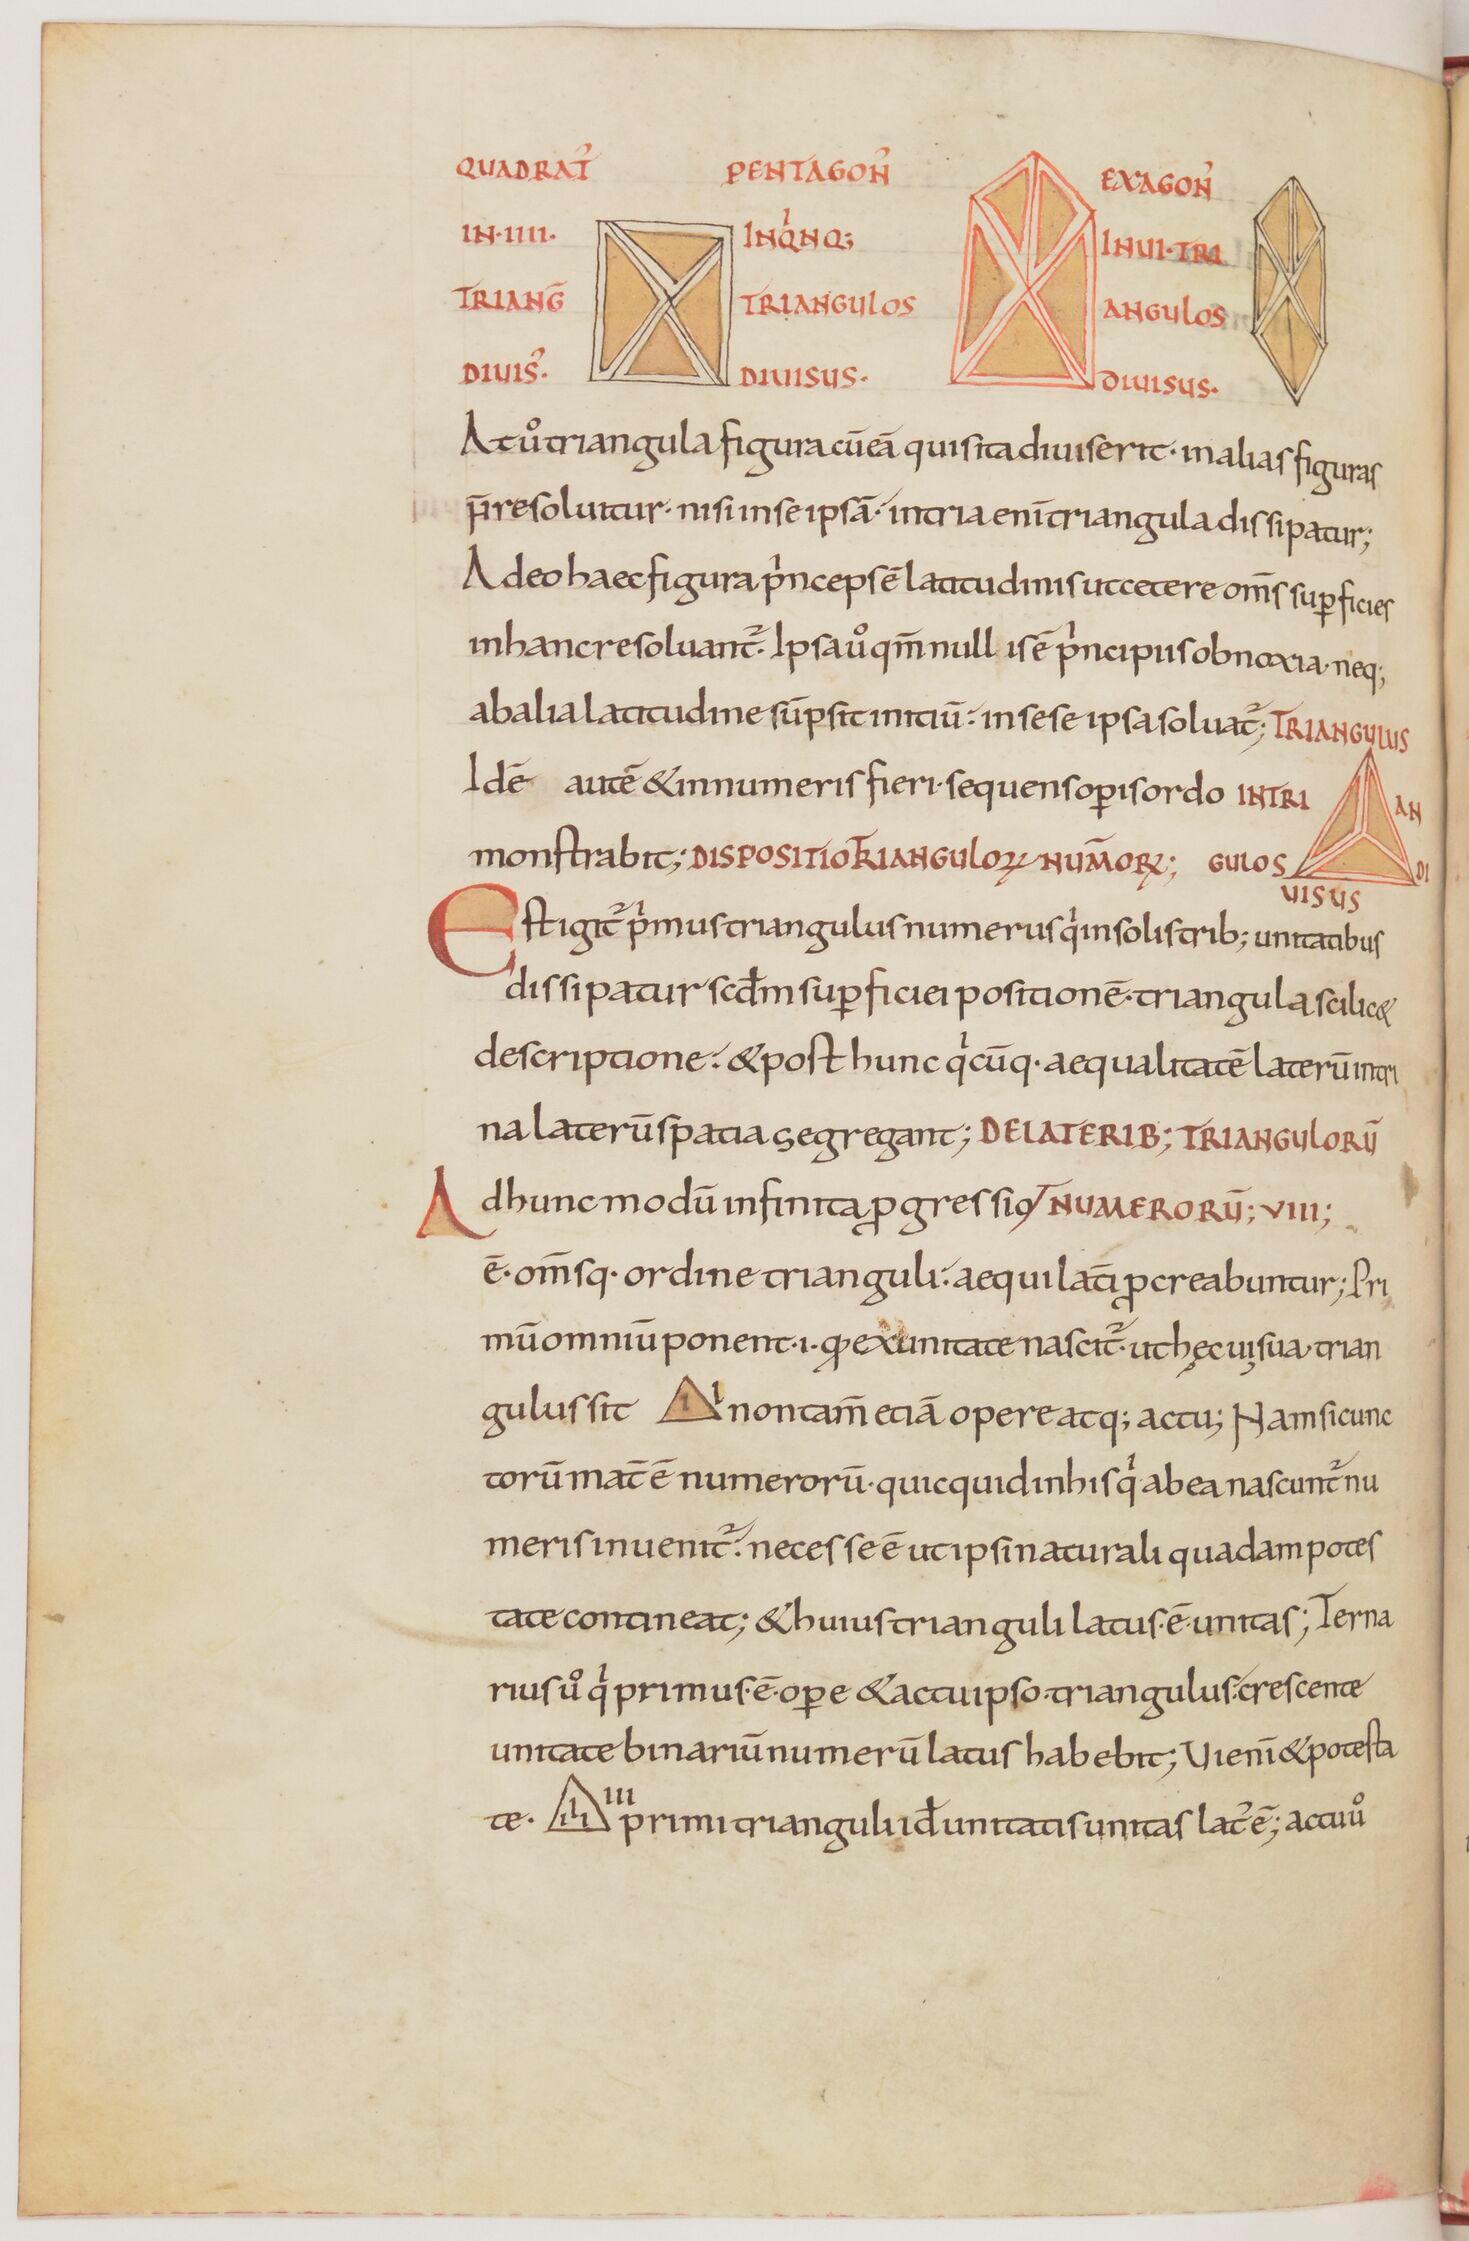 QUADRAT᷒
IN·IIII·
TRIANḠ
DIUIS᷒·
PENTAGON᷒
INQͥNQ;
TRIANGULOS
DIUISUS·
EXAGON᷒
INUI·TRI
ANGULOS
DIUISUS·
At uͦ triangula figura cū eā quis ita diuiserit· in alias figuras
n̄ resoluitur· nisi in se ipsā· in tria enī triangula dissipatur;
Adeo haec figura pͥnceps ē latitudinis ut cetere om̄s suꝑficies
in hanc resoluant᷒· Ipsa uͦ qm̄ nullis ē pͥncipiis obnoxia· neq;
ab alia latitudine sūpsit initiū· in sese ipsa soluat᷒; TRIANGULUS
Idē autē & in numeris fieri· sequens oꝑis ordo INTRI AN
monstrabit; DISPOSITIO TRIANGULOꝜ NUM̄OꝜ; GULOS DI
UISUS
Est igit᷒ pͥmus triangulus numerus qͥ in solis trib; unitatibus
dissipatur scd̄m suꝑficiei positionē· triangula scilic&
descriptione· & post hunc qͥcūq· aequalitatē laterū in tri
na laterū spatia segregant; DE LATERIB; TRIANGULORŪ
Ad hunc modū infinita ꝓgressio NUMERORŪ; VIII;
ē· om̄sq· ordine trianguli· aequilat̄i ꝓcreabuntur; Pri
mū omniū ponent·ı· qđ ex unitate nascit᷒· ut hęc ui sua· trian
gulus sit I I non tam̄ etiā opere atq; actu; Nam si cunc
torū mat̄ ē numerorū· quicquid in his qͥ ab ea nascunt᷒ nu
meris inuenit᷒· necesse ē ut ipsi naturali quadam potes
tate contineat; & huius trianguli latus· ē· unitas; Terna
rius uͦ qͥ primus· ē· oꝑe & actu ipso· triangulus· crescente
unitate binariū numerū latus habebit; Ui enī & potesta
te· III III primi trianguli id̄ unitatis unitas lat᷒ ē; actu uͦ